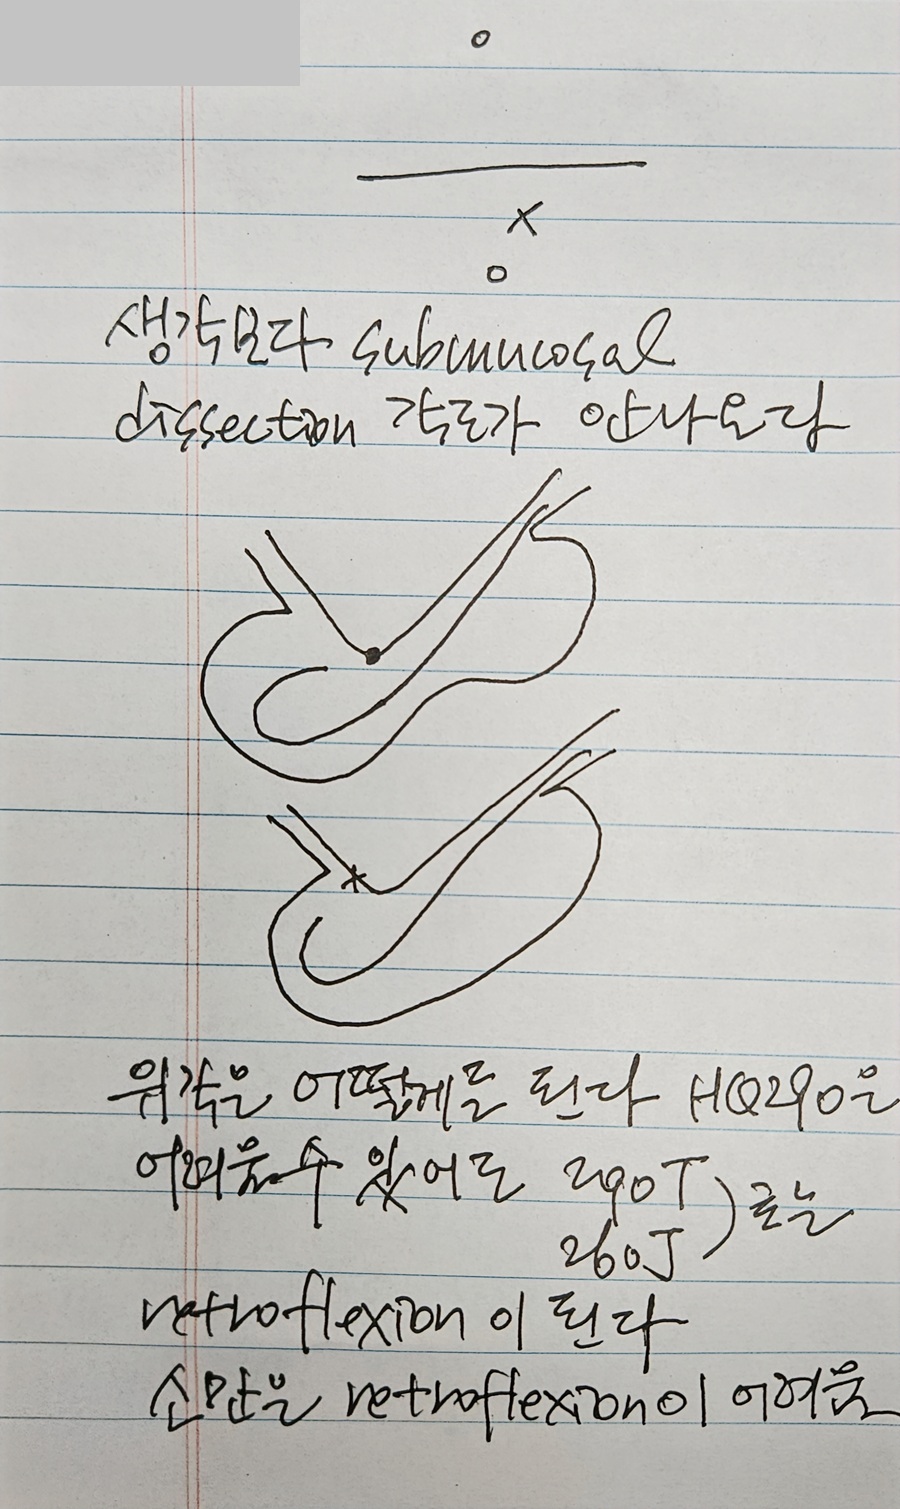 생각보다 submucosal
dissection 각도가 안나온다
위각은 어떻게든 된다 HQ290은
어려울수 있어도 290T
260J ) 로는
retroflexion이 된다
소만은 retroflexion이 어려움